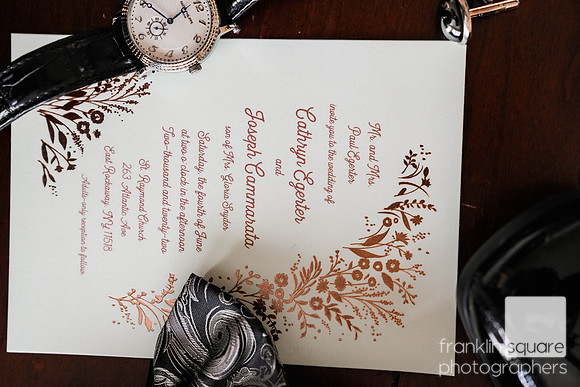 Mr. and Mrs.
Paul Egerter
invite you to the wedding of
Cathryn Egerter
and
Joseph Cammarata
son of Mrs. Gloria Snyder
Saturday, the fourth of June
at two o'clock in the afternoon
Two-thousand and twenty-two
St. Raymond Church
263 Atlantic Ave
East Rockaway, NY 11518
Adults-only reception to follow.
franklin square
photographers